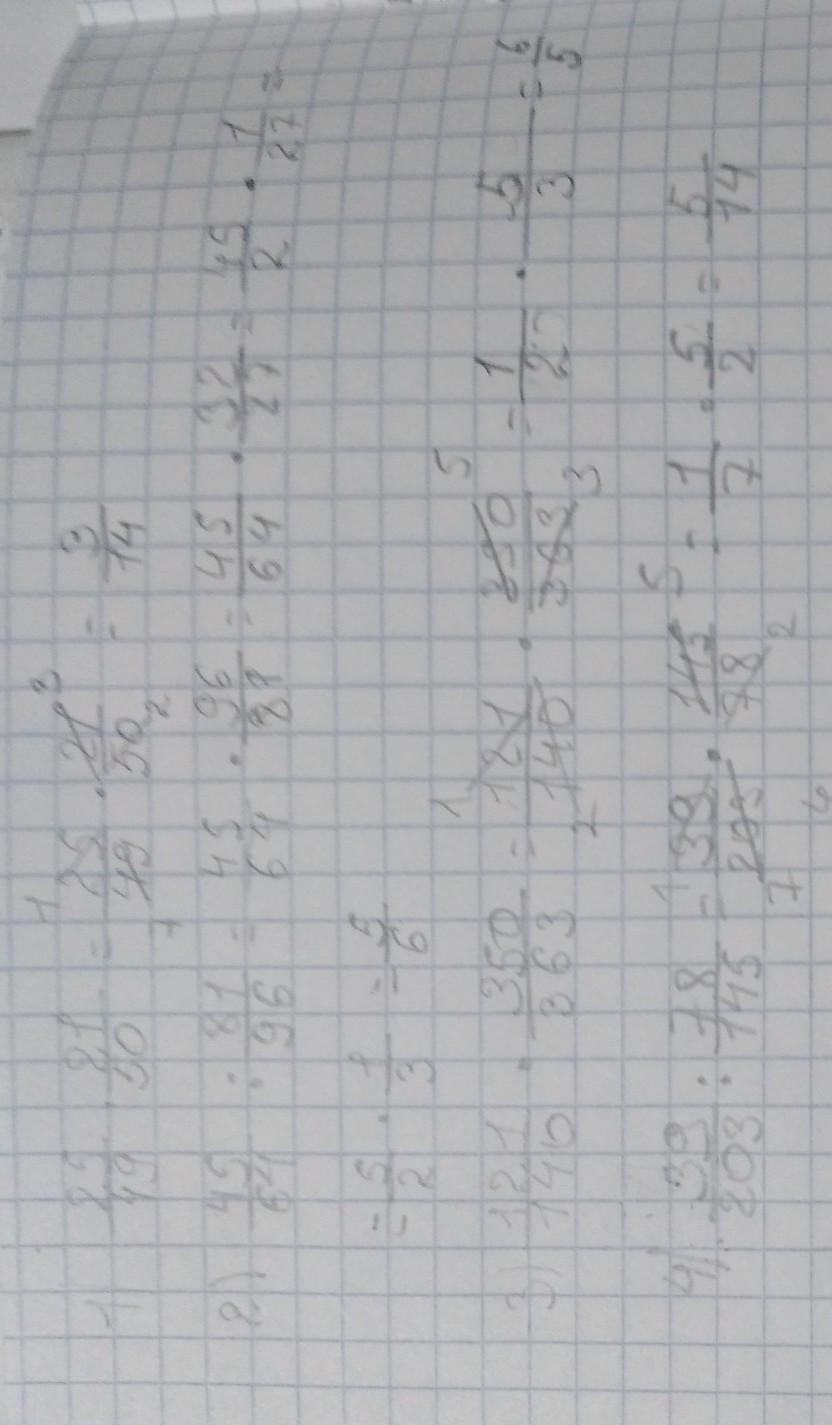 1) 25/49 · 21/50 = 25/49 · 21/50 = 3/14
2) 45/64 : 81/96 = 45/64 · 96/81 = 45/64 · 32/27 = 45/2 · 1/27 =
= 5/2 · 1/3 = 5/6
3) 121/140 · 350/363 = 121/140 · 350/363 = 1/2 · 5/3 = 5
4) 39/203 : 78/145 = 39/203 · 145/78 = 1/7 · 5/2 = 5/14